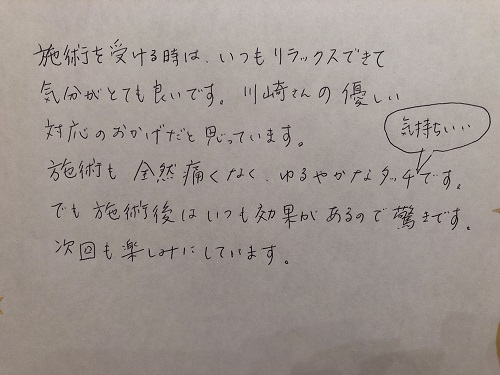 施術を受ける時は、いつもリラックスできて
気分がとても良いです。川崎さんの優しい
対応のおかげだと思っています。
気持ちいい
施術も全然痛くなく、ゆるやかなタッチです。
でも施術後はいつも効果があるので驚きです。
次回も楽しみにしています。